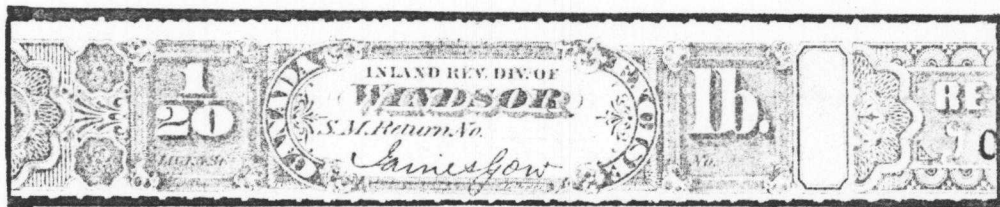 1/20
LICENSE
CANADA EXCISE
INLAND REV. DIV. OF
WINDSOR
S.M. Return No.
James Gow
lb.
No.
RE